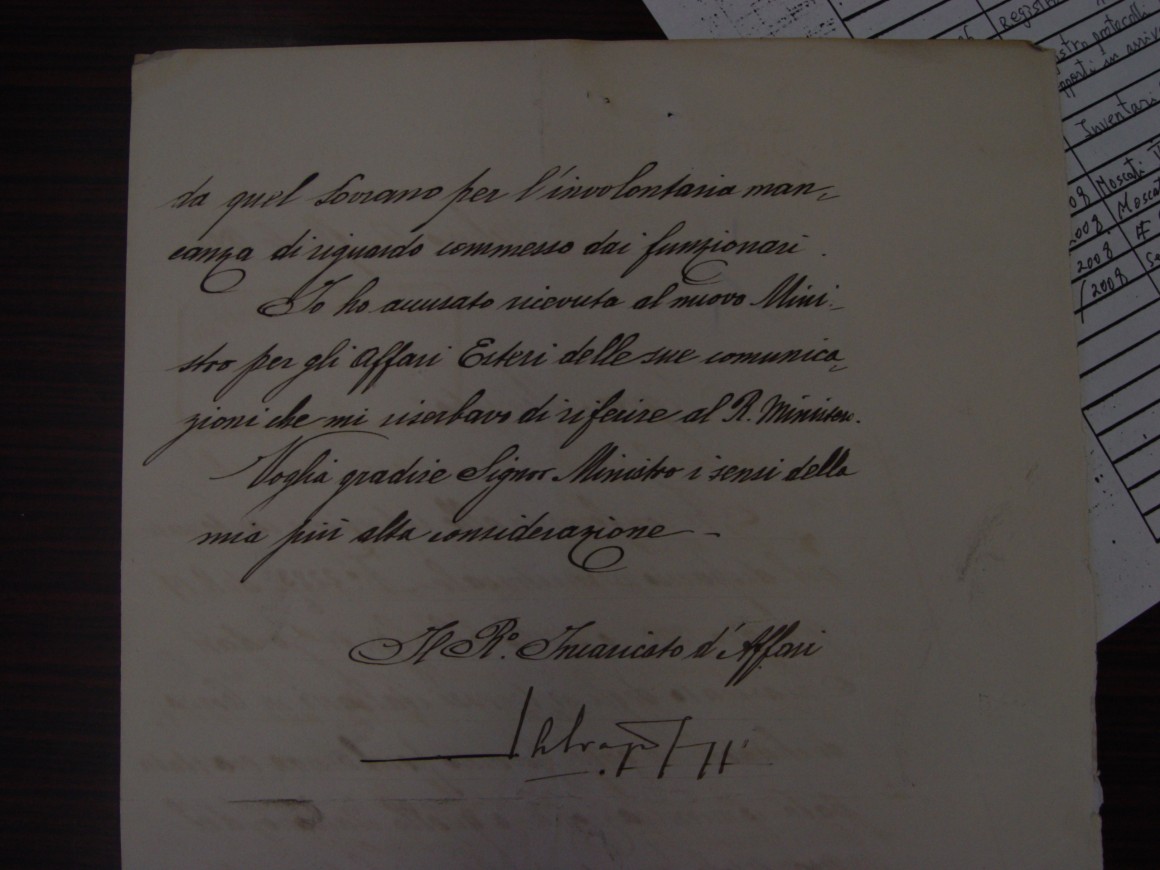 da quel Sovrano per l'involontaria man-
canza di riguardo commesso dai funzionari.
Io ho accusato ricevuta al nuovo Mini-
stro per gli Affari Esteri delle sue comunica-
zioni che mi riserbavo di riferire al R. Ministero.
Voglia gradire Signor Ministro i sensi della
mia più alta considerazione -
Il R.º Incaricato d'Affari
Registro
protocolli
in arrivo
Inventari
Moscati
2008
2008
/2008